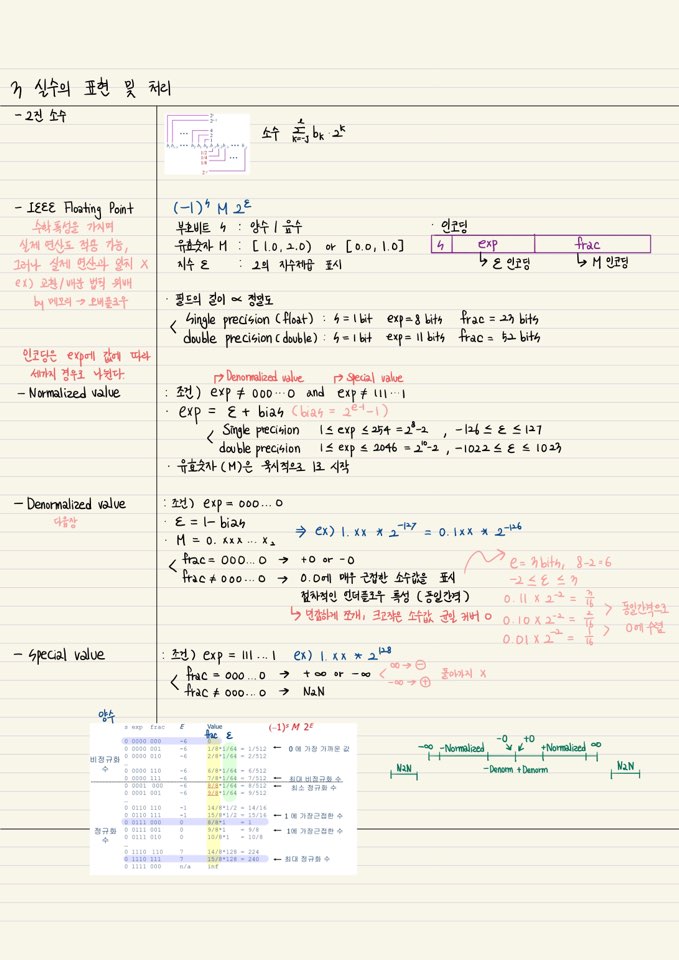 3 실수의 표현 및 처리
- 2진 소수
소수 Σ bk · 2^k
k=-j
- IEEE Floating Point
수학 특성을 가지며
실제 연산도 적용 가능,
그러나 실제 연산과 일치 X
ex) 교환/배분 법칙 위배
by 메모리 → 오버플로우
(-1)^s M 2^E
부호비트 s : 양수 / 음수
유효숫자 M : [1.0, 2.0) or [0.0, 1.0]
지수 E : 2의 지수제곱 표시
· 인코딩
s exp frac
↳ E 인코딩 ↳ M 인코딩
· 필드의 길이 ∝ 정밀도
< single precision (float) : s = 1 bit exp = 8 bits frac = 23 bits
double precision (double) : s = 1 bit exp = 11 bits frac = 52 bits
인코딩은 exp에 값에 따라
세가지 경우로 나뉜다.
- Normalized value
→ Denormalized value → Special value
: 조건) exp ≠ 000...0 and exp ≠ 111...1
· exp = E + bias (bias = 2^(e-1) - 1)
< Single precision 1 ≤ exp ≤ 254 = 2^8-2 , -126 ≤ E ≤ 127
double precision 1 ≤ exp ≤ 2046 = 2^10-2 , -1022 ≤ E ≤ 1023
· 유효숫자 (M)은 묵시적으로 1로 시작
- Denormalized value
: 조건) exp = 000...0
· E = 1 - bias
· M = 0.xxx...x₂
⇒ ex) 1.xx * 2^-127 = 0.1xx * 2^-126
< frac = 000...0 → +0 or -0
frac ≠ 000...0 → 0.0에 매우 근접한 소수값을 표시
점차적인 언더플로우 특성 (동일간격)
e = 3 bits, 8-2 = 6
-2 ≤ E ≤ 3
0.11 x 2^-2 = 3/16
0.10 x 2^-2 = 2/16
0.01 x 2^-2 = 1/16
> 동일간격으로
> 0에 수렴
- Special value
: 조건) exp = 111...1 ex) 1.xx * 2^128
< frac = 000...0 → +∞ or -∞
frac ≠ 000...0 → NaN
< ∞ → ⊖
-∞ → ⊕
양수
s exp frac E Value
frac E
(-1)^s M 2^E
비정규화
수
0 0000 000 -6 0
0 0000 001 -6 1/8*1/64 = 1/512 ← 0에 가장 가까운 값
0 0000 010 -6 2/8*1/64 = 2/512
…
0 0000 110 -6 6/8*1/64 = 6/512
0 0000 111 -6 7/8*1/64 = 7/512 ← 최대 비정규화 수
0 0001 000 -6 8/8*1/64 = 8/512 ← 최소 정규화 수
0 0001 001 -6 9/8*1/64 = 9/512
…
0 0110 110 -1 14/8*1/2 = 14/16
0 0110 111 -1 15/8*1/2 = 15/16 ← 1에 가장근접한 수
0 0111 000 0 8/8*1 = 1
0 0111 001 0 9/8*1 = 9/8 ← 1에 가장근접한 수
0 0111 010 0 10/8*1 = 10/8
…
0 1110 110 7 14/8*128 = 224
0 1110 111 7 15/8*128 = 240 ← 최대 정규화 수
0 1111 000 n/a inf
정규화
수
-0 +0
-∞ -Normalized +Normalized ∞
NaN -Denorm +Denorm NaN